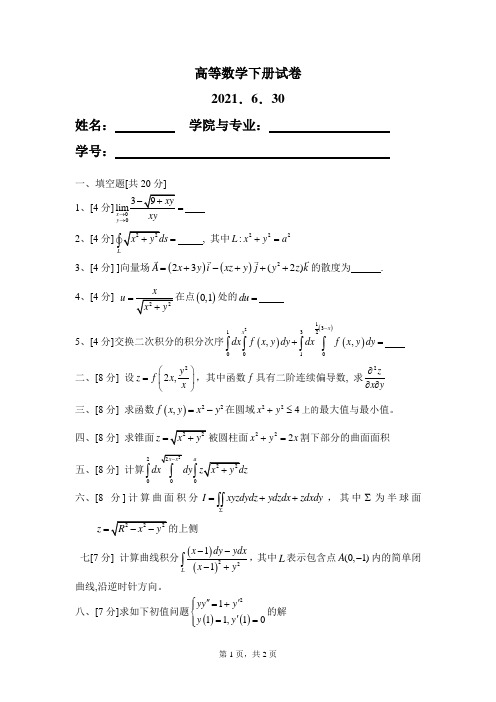 高等数学下册试卷
2021．6．30
姓名： 学院与专业：
学号：
一、填空题[共 20 分]
1、[4 分] \lim_{x→0, y→0} \frac{3-\sqrt{9+xy}}{xy} =
2、[4 分] \oint_L \sqrt{x^2+y^2} ds = , 其中 L: x^2+y^2=a^2
3、[4 分] ]向量场 \vec{A}=(2x+3y)\vec{i}-(xz+y)\vec{j}+(y^2+2z)\vec{k} 的散度为 .
4、[4 分] u=\frac{x}{\sqrt{x^2+y^2}} 在点(0,1)处的 du=
5、[4 分]交换二次积分的积分次序 \int_0^1 dx \int_0^{x^2} f(x,y)dy + \int_1^3 dx \int_0^{\frac{1}{2}(3-x)} f(x,y)dy =
二、[8 分] 设 z=f(2x, \frac{y^2}{x})，其中函数 f 具有二阶连续偏导数, 求 \frac{∂^2 z}{∂x∂y}
三、[8 分] 求函数 f(x,y)=x^2-y^2 在圆域 x^2+y^2≤4 上的最大值与最小值。
四、[8 分] 求锥面 z=\sqrt{x^2+y^2} 被圆柱面 x^2+y^2=2x 割下部分的曲面面积
五、[8 分] 计算 \int_0^2 dx \int_0^{\sqrt{2x-x^2}} dy \int_0^a z\sqrt{x^2+y^2} dz
六、[8 分]计算曲面积分 I=\iint_Σ xyzdydz+ydzdx+zdxdy，其中 Σ 为半球面
z=\sqrt{R^2-x^2-y^2} 的上侧
七[7 分] 计算曲线积分 \int_L \frac{(x-1)dy-ydx}{(x-1)^2+y^2}，其中 L 表示包含点 A(0,-1) 内的简单闭
曲线,沿逆时针方向。
八、[7 分]求如下初值问题 \begin{cases} yy''=1+y'^2 \\ y(1)=1, y'(1)=0 \end{cases} 的解
第 1 页，共 2 页